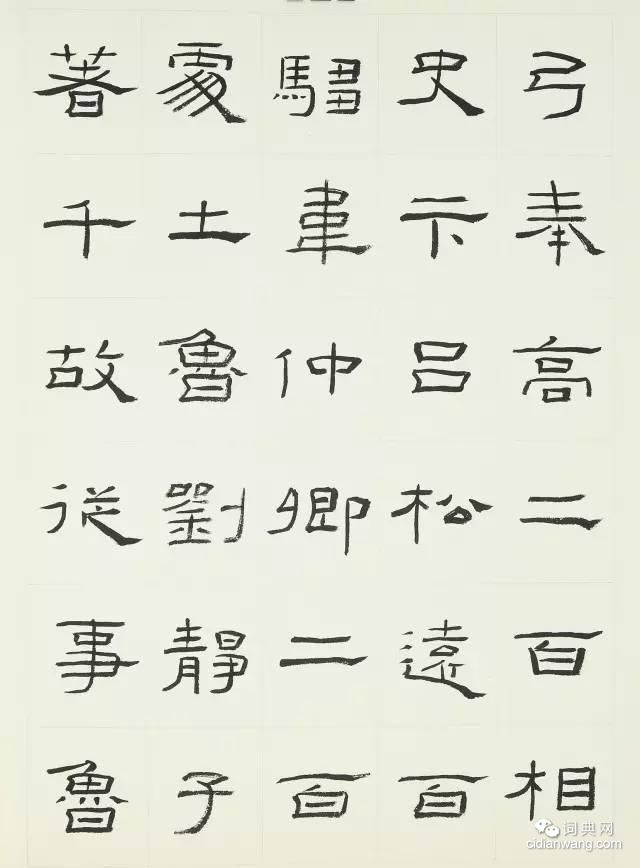 弓奉高二百相
史卞呂松遠百
騶韋仲卿二百
處土魯劉靜子
著千故從事魯
词典网
cidianwang.com